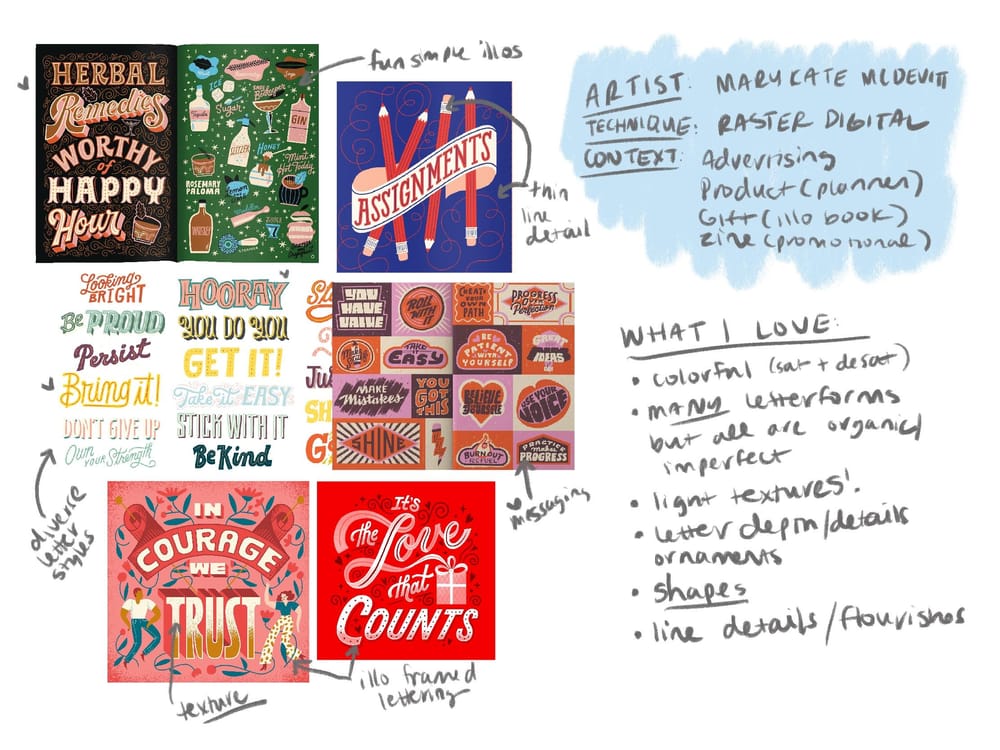 HERBAL
Remedies
WORTHY
of
HAPPY
Hour
ICE
Tequila
Sugar
SELTZER
GIN
HONEY
Mint
Hot Toddy
ROSEMARY
PALOMA
WHISKEY
fun simple illos
ASSIGNMENTS
thin
line
detail
ARTIST: MARYKATE MCDEVITT
TECHNIQUE: RASTER DIGITAL
CONTEXT: Advertising
Product (planner)
Gift (illo book)
Zine (promotional)
Looking
BRIGHT
Be PROUD
Persist
Bring it!
DON'T GIVE UP
Own YOUR Strength
HOORAY
YOU DO YOU
GET IT!
Take it EASY
STICK WITH IT
Be Kind
YOU
HAVE
VALUE
ROLL
WITH
IT
CREATE
YOUR
OWN
PATH
PROGRESS
OVER
Perfection
TAKE IT
EASY
BE
PATIENT
WITH
YOURSELF
GREAT
IDEAS
MAKE
Mistakes
YOU
GOT
THIS
BELIEVE
IN
YOURSELF
USE YOUR
VOICE
SHINE
BURNOUT
REFUEL
PRACTICE
MAKES
PROGRESS
diverse
letter
styles
messaging
IN
COURAGE
WE
TRUST
IT'S
the Love
that
COUNTS
texture
illo framed
lettering
WHAT I LOVE:
• colorful (sat + desat)
• MANY letterforms
but all are organic/
imperfect
• light textures!
• letter depth/details
ornaments
• shapes
• line details/flourishes